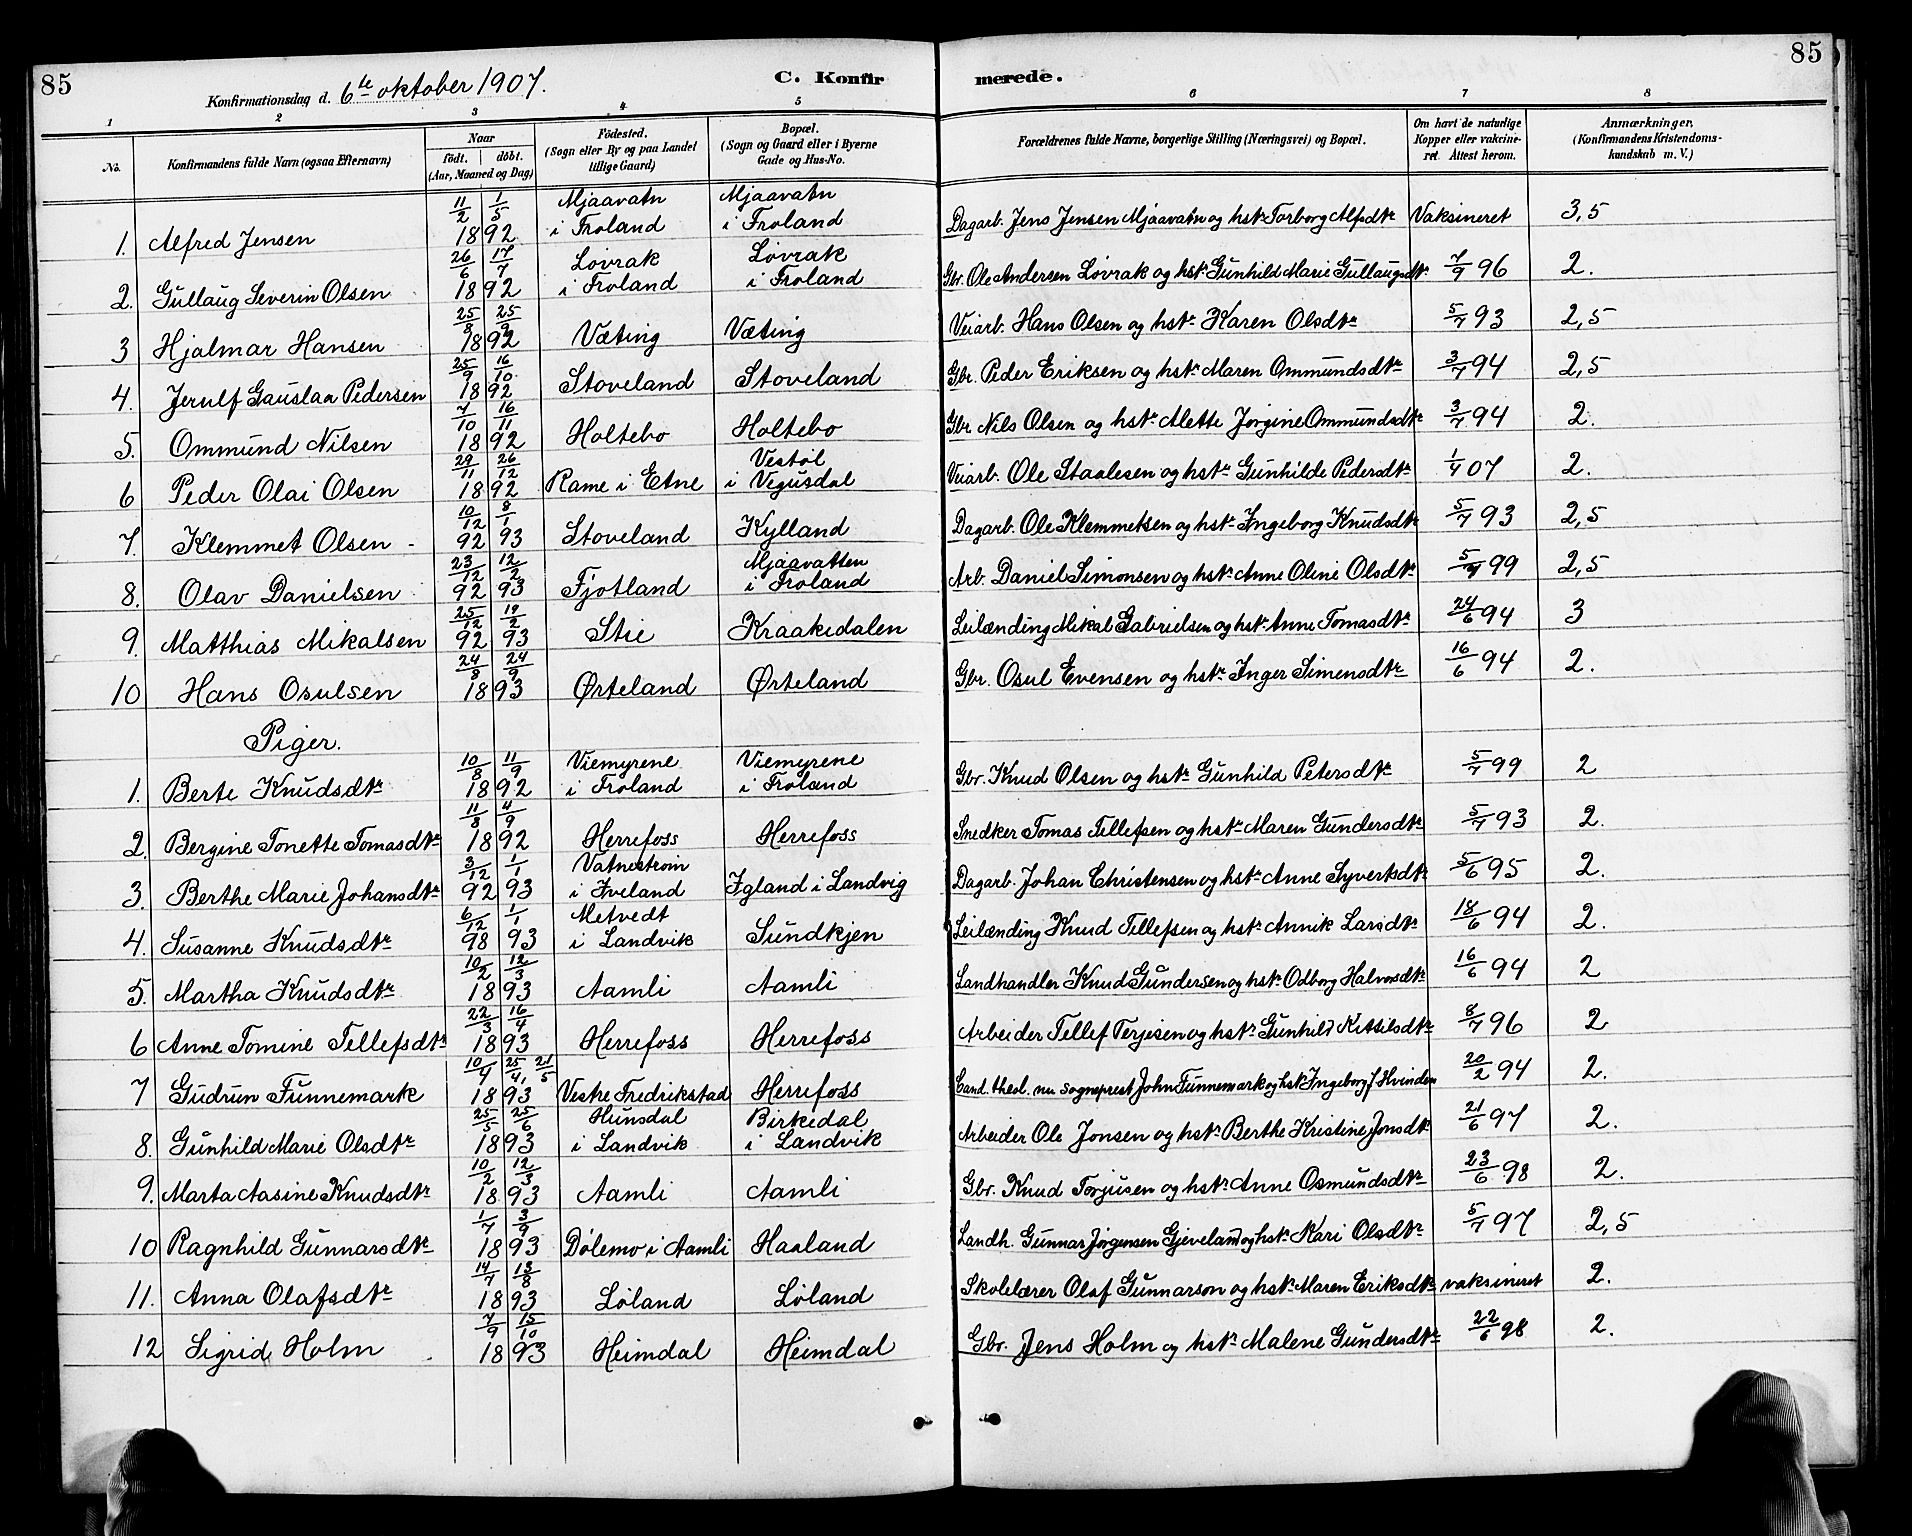 85 C. Konfirmerede. 85
Konfirmationsdag d. 6te oktober 1907.
1 2 3 4 5 6 7 8
No. | Konfirmandens fulde Navn (ogsaa Efternavn) | Naar født. døbt. (Aar, Maaned og Dag) | Födested. (Sogn eller By og paa Landet tillige Gaard) | Bopæl. (Sogn og Gaard eller i Byerne Gade og Hus-No. | Forældrenes fulde Navne, borgerlige Stilling (Næringsvei) og Bopæl. | Om havt de naturlige Kopper eller vakcineret. Attest herom. | Anmærkninger, (Konfirmandens Kristendomskundskab m. V.)
1. Alfred Jensen | 11/2 1/5 1892 | Mjaavatn i Froland | Mjaavatn i Froland | Dagarb. Jens Jensen Mjaavatn og hstr Torborg Alfsdtr | Vaksineret | 3,5
2. Gullaug Severin Olsen | 26/6 17/7 1892 | Løvrak i Froland | Løvrak i Froland | Gbr. Ole Andersen Løvrak og hstr Gunhild Marie Gullaugsdtr | 7/9 96 | 2.
3 Hjalmar Hansen | 25/8 25/9 1892 | Væting | Væting | Veiarb. Hans Olsen og hstr Karen Olsdtr | 5/7 93 | 2,5
4. Jerulf Gauslaa Pedersen | 25/9 16/10 1892 | Stoveland | Stoveland | Gbr. Peder Eriksen og hstr Maren Ommundsdtr | 3/7 94 | 2,5
5. Ommund Nilsen | 7/10 16/11 1892 | Holtebo | Holtebo | Gbr Nils Olsen og hstr Alette Jørgine Ommundsdtr | 3/7 94 | 2.
6 Peder Olai Olsen | 29/11 26/12 1892 | Rame i Etne | Vestøl i Vegusdal | Veiarb. Ole Staalesen og hstr Gunhilde Pedersdtr | 1/7 07 | 2.
7. Klemmet Olsen - | 10/12 92 8/1 93 | Stoveland | Kylland | Dagarb. Ole Klemmetsen og hstr Ingeborg Knudsdtr | 5/7 93 | 2,5
8. Olav Danielsen | 23/12 92 12/2 93 | Fjotland | Mjaavatten i Froland | Arb. Daniel Simonsen og hstr Anne Oline Olsdtr | 5/7 99 | 2,5
9. Matthias Mikalsen | 25/12 92 19/2 93 | Stie | Kraakedalen | Leilænding Mikal Gabrielsen og hstr Anne Tomasdtr | 24/6 94 | 3
10 Hans Osulsen | 24/8 24/9 1893 | Ørteland | Ørteland | Gbr. Osul Evensen og hstr Inger Simensdtr | 16/6 94 | 2.
Piger.
1. Berte Knudsdtr | 10/8 11/9 1892 | Viemyrene i Froland | Viemyrene i Froland | Gbr. Knud Olsen og hstr Gunhild Petersdtr | 5/7 99 | 2
2. Bergine Tonette Tomasdtr | 11/8 4/9 1892 | Herrefoss | Herrefoss | Snedker Tomas Tellefsen og hstr Maren Gundersdtr | 5/7 93 | 2.
3. Berthe Marie Johansdtr | 3/12 92 1/1 93 | Vatnestrøm i Iveland | Igland i Landvig | Dagarb. Johan Christensen og hstr Anne Syvertsdtr | 5/6 95 | 2.
4. Susanne Knudsdtr | 6/12 98 1/1 93 | Metvedt i Landvik | Sundkjen | Leilænding Knud Tellefsen og hstr Annik Larsdtr | 18/6 94 | 2.
5. Martha Knudsdtr | 10/2 12/3 1893 | Aamli | Aamli | Landhandler Knud Gundersen og hstr Odborg Halvorsdtr | 16/6 94 | 2
6 Anne Tomine Tellefsdtr | 22/3 16/4 1893 | Herrefoss | Herrefoss | Arbeider Tellef Terjesen og hstr Gunhild Kittilsdtr | 8/7 96 | 2
7 Gudrun Funnemark | 10/4 25/4, 21/5 1893 | Vestre Fredrikstad | Herrefoss | Cand. theol. nu sogneprest John Funnemark og hstr Ingeborg f Hvinden | 20/2 94 | 2.
8. Gunhild Marie Olsdtr | 25/5 25/6 1893 | Hunsdal i Landvik | Birkedal i Landvik | Arbeider Ole Jonsen og hstr Berthe Kristine Jonsdtr | 21/6 97 | 2.
9. Marta Aasine Knudsdtr | 10/2 12/3 1893 | Aamli | Aamli | Gbr. Knud Torjusen og hstr Anne Osmundsdtr | 23/6 98 | 2.
10 Ragnhild Gunnarsdtr | 1/7 3/9 1893 | Dølemo i Aamli | Haaland | Landh. Gunnar Jørgensen Gjeveland og hstr Kari Olsdtr | 5/7 97 | 2,5
11. Anna Olafsdtr | 14/7 13/8 1893 | Løland | Løland | Skolelærer Olaf Gunnarson og hstr Maren Eriksdtr | vaksineret | 2.
12 Sigrid Holm | 7/9 15/10 1893 | Heimdal | Heimdal | Gbr. Jens Holm og hstr Malene Gundersdtr | 22/6 98 | 2.